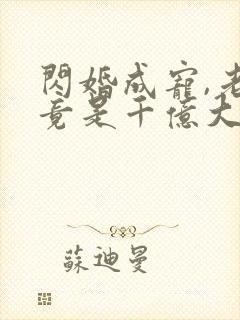 閃婚成寵,老
竟是千億大
蘇迪曼